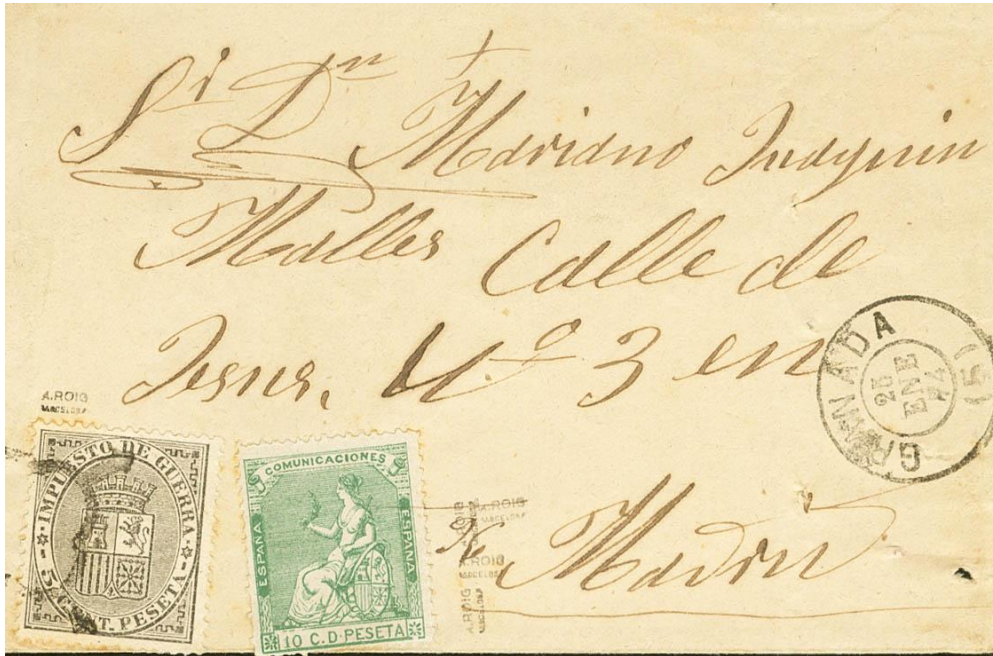 Sr Dn Mariano Juaquin
Malles Calle de
Jesus, Nº 3 en
Madrid
GRANADA
25
ENE
74
(5)
A.ROIG
BARCELONA
IMPUESTO DE GUERRA
5 CENT. PESETA
COMUNICACIONES
ESPAÑA
ESPAÑA
10 C. D PESETA
A.ROIG
BARCELONA
A.ROIG
BARCELONA
A.ROIG
BARCELONA
A.ROIG
BARCELONA